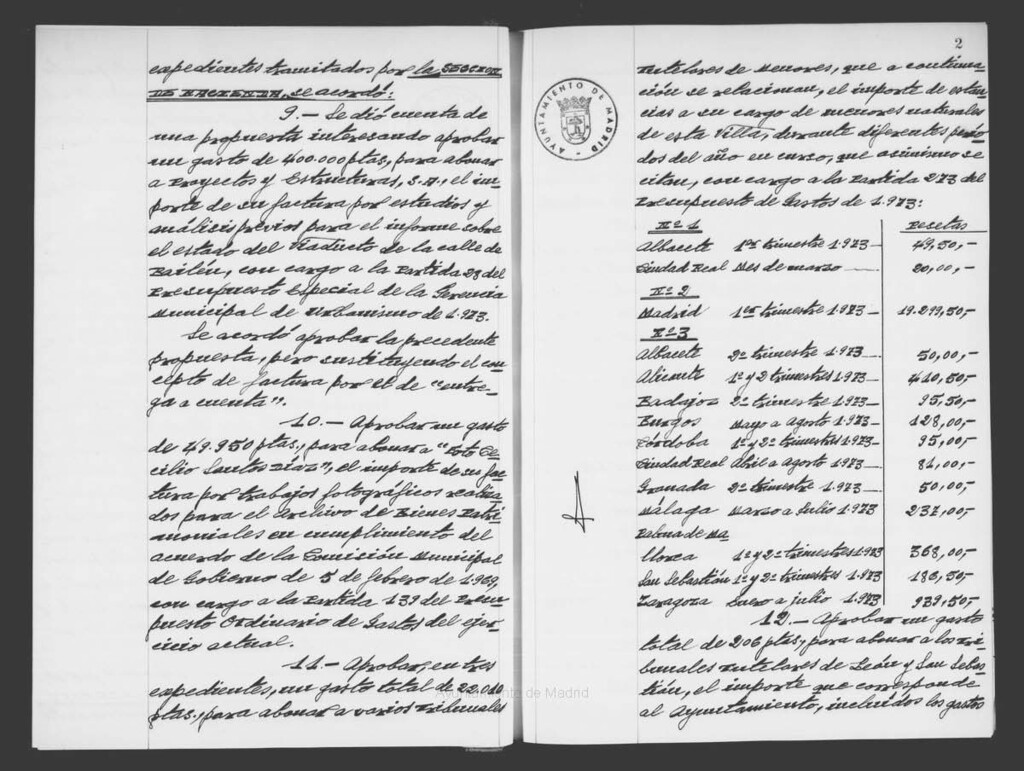 expedientes tramitados por la SECCION
DE HACIENDA, se acordó:
9.- Se dió cuenta de
una propuesta interesando aprobar
un gasto de 400.000 ptas, para abonar
a Proyectos y Estructuras, S.A., el im-
porte de su factura por estudios y
análisis previos para el informe sobre
el estado del Viaducto de la calle de
Bailén, con cargo a la Partida 23 del
Presupuesto Especial de la Gerencia
Municipal de Urbanismo de 1.973.
Se acordó aprobar la precedente
propuesta, pero sustituyendo el con-
cepto de factura por el de "entre-
ga a cuenta".
10.- Aprobar un gasto
de 49.950 ptas., para abonar a "Foto Ce-
cilio Santos Díaz", el importe de su fac-
tura por trabajos fotográficos realiza-
dos para el Archivo de Bienes Patri-
moniales en cumplimiento del
acuerdo de la Comisión Municipal
de Gobierno de 5 de febrero de 1.969,
con cargo a la Partida 139 del Presu-
puesto Ordinario de Gastos del ejer-
cicio actual.
11.- Aprobar, en tres
expedientes, un gasto total de 22.010
ptas., para abonar a varios Tribunales
2
AYUNTAMIENTO DE MADRID
Tutelares de Menores, que a continua-
ción se relacionan, el importe de estan-
cias a su cargo de menores naturales
de esta Villa, durante diferentes perío-
dos del año en curso, que asimismo se
citan, con cargo a la Partida 273 del
Presupuesto de Gastos de 1.973:
Nº 1 Pesetas
Albacete 1er trimestre 1.973 — 49,50,-
Ciudad Real Mes de marzo — 20,00,-
Nº 2
Madrid 1er trimestre 1.973 — 19.299,50,-
Nº 3
Albacete 2º trimestre 1.973 — 50,00,-
Alicante 1º y 2 trimestres 1.973 — 410,50,-
Badajoz 2º trimestre 1.973 — 95,50,-
Burgos Mayo a Agosto 1.973 — 128,00,-
Córdoba 1º y 2º trimestres 1.973 — 95,00,-
Ciudad Real Abril a Agosto 1.973 81,00,-
Granada 2º trimestre 1.973 — 50,00,-
Málaga Marzo a Julio 1.973 237,00,-
Palma de Ma-
llorca 1º y 2º trimestres 1.973 368,00,-
San Sebastián 1º y 2º trimestres 1.973 186,50,-
Zaragoza Enero a julio 1.973 939,50,-
12.- Aprobar un gasto
total de 206 ptas, para abonar a los Tri-
bunales Tutelares de León y San Sebas-
tián, el importe que corresponde
al Ayuntamiento, incluidos los gastos
Ayuntamiento de Madrid